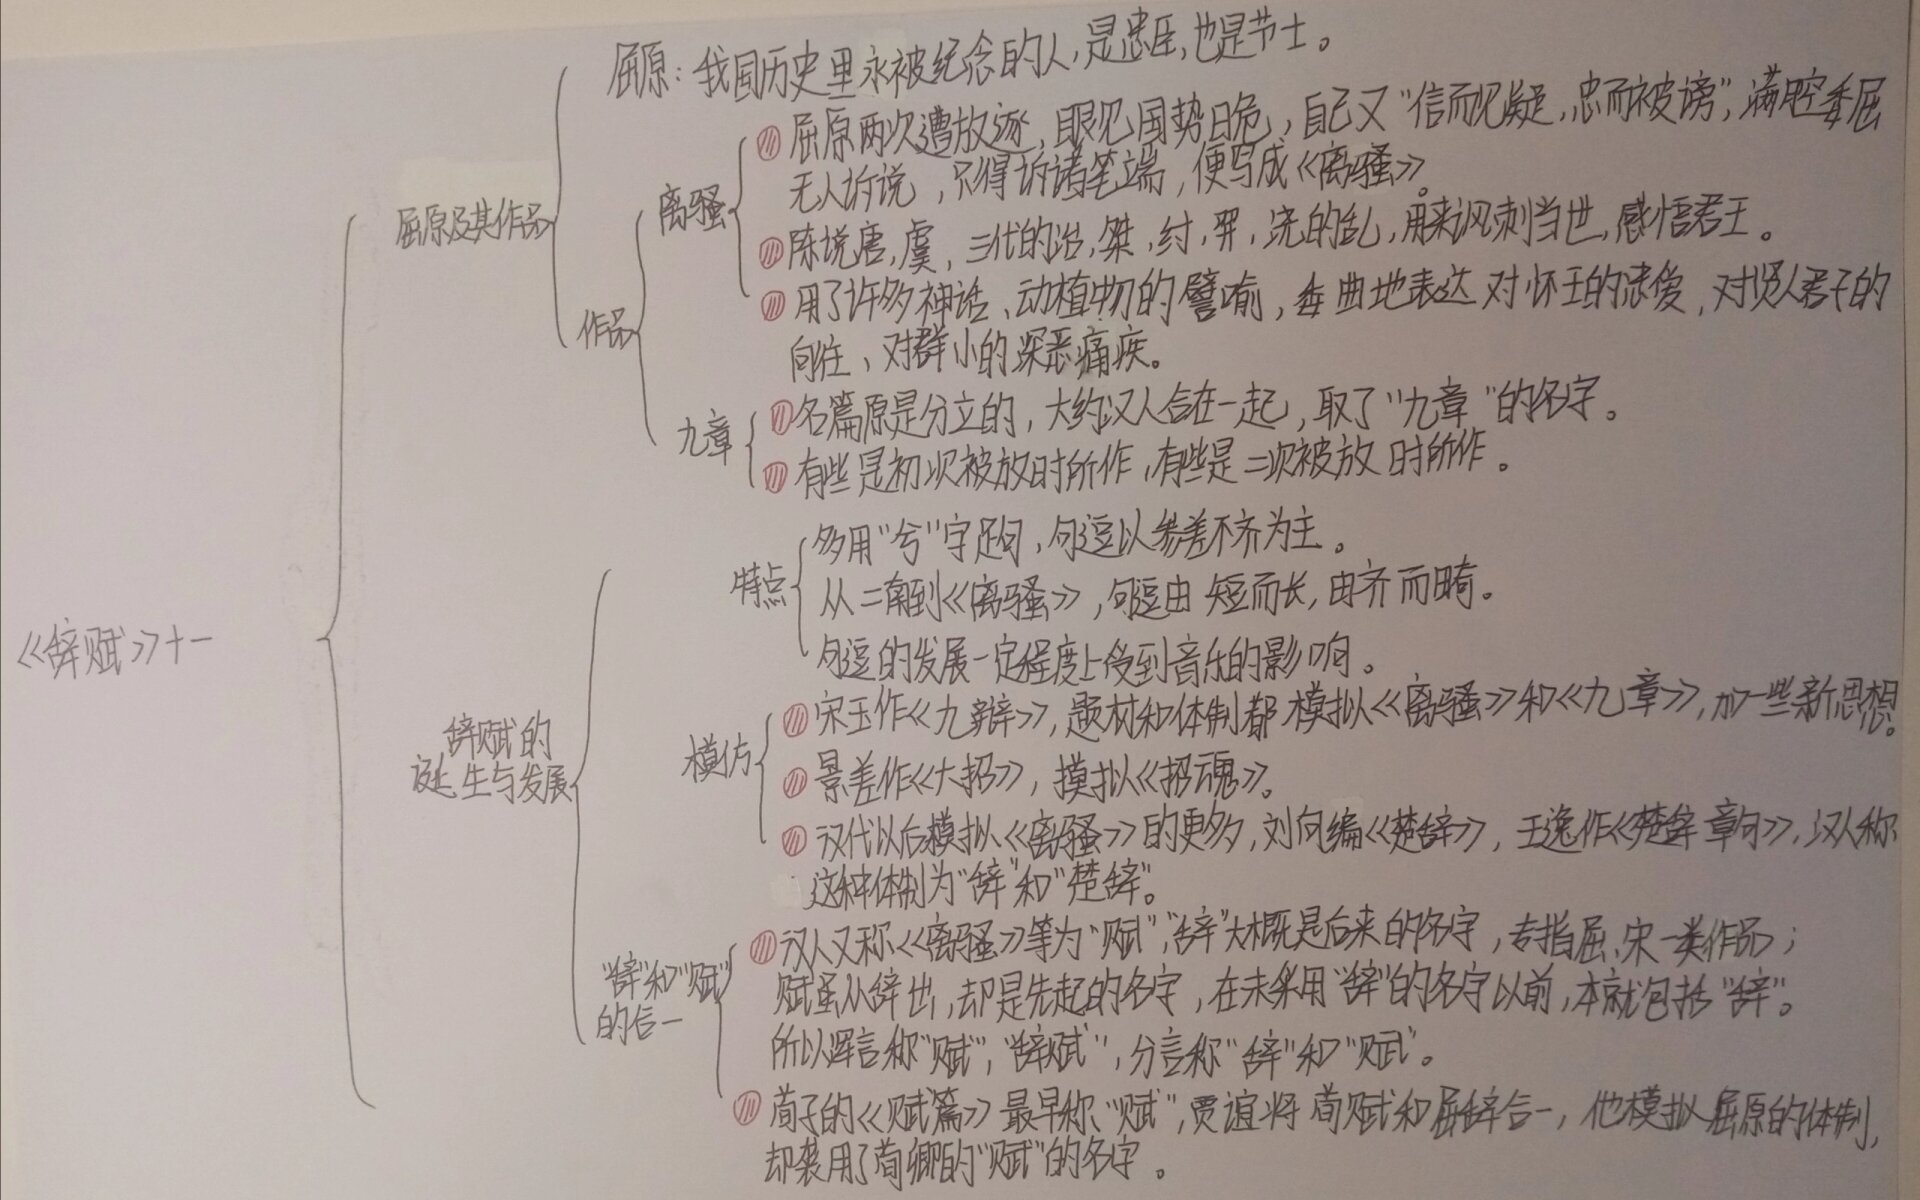 《辞赋》十一
屈原及其作品
屈原：我国历史里永被纪念的人，是忠臣，也是节士。
作品
离骚
屈原两次遭放逐，眼见国势日危，自己又“信而见疑，忠而被谤”，满腔委屈
无人诉说，只得诉诸笔端，便写成《离骚》。
陈说唐，虞，三代的治，桀，纣，羿，浇的乱，用来讽刺当世，感悟君王。
用了许多神话、动植物的譬喻，委曲地表达对怀王的忠爱，对贤人君子的
向往，对群小的深恶痛疾。
九章
各篇原是分立的，大约汉人合在一起，取了“九章”的名字。
有些是初次被放时所作，有些是二次被放时所作。
辞赋的
诞生与发展
特点
多用“兮”字足句，句逗以参差不齐为主。
从二南到《离骚》，句逗由短而长，由齐而畸。
句逗的发展一定程度上受到音乐的影响。
模仿
宋玉作《九辩》，题材和体制都模拟《离骚》和《九章》，加一些新思想。
景差作《大招》，摸拟《招魂》。
汉代以后模拟《离骚》的更多，刘向编《楚辞》，王逸作《楚辞章句》，汉人称
这种体制为“辞”和“楚辞”。
“辞”和“赋”
的合一
汉人又称《离骚》等为“赋”，“辞”大概是后来的名字，专指屈、宋一类作品；
赋虽从辞出，却是先起的名字，在未采用“辞”的名字以前，本就包括“辞”。
所以浑言称“赋”，“辞赋”，分言称“辞”和“赋”。
荀子的《赋篇》最早称“赋”，贾谊将荀赋和屈辞合一，他模拟屈原的体制，
却袭用了荀卿的“赋”的名字。